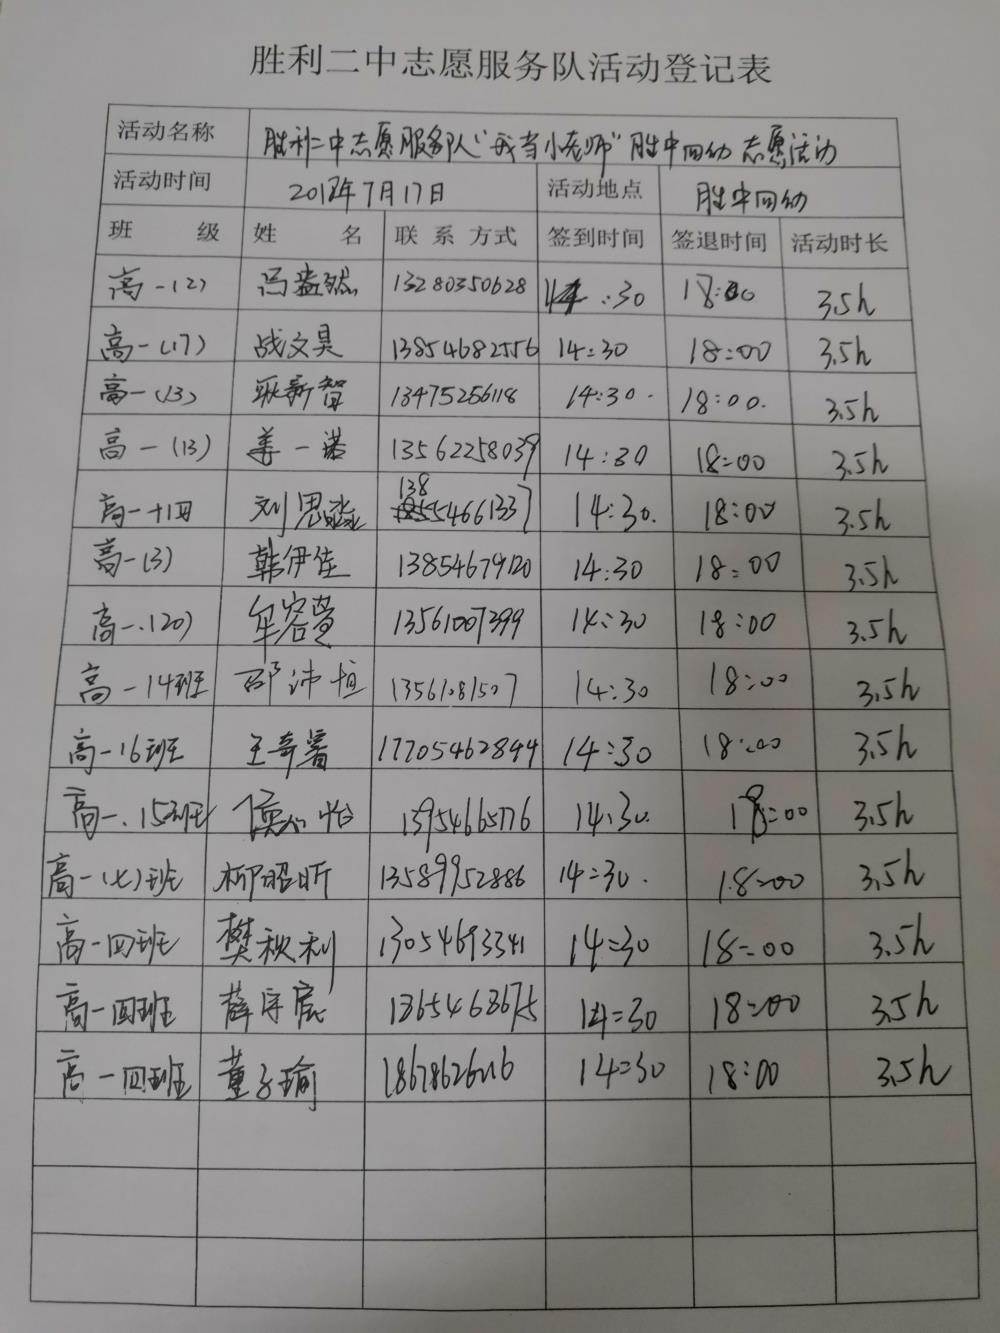 胜利二中志愿服务队活动登记表
活动名称 胜利二中志愿服务队"我当小老师"胜中四幼 志愿活动
活动时间 2018年7月17日 活动地点 胜中四幼
班 级 姓 名 联 系 方式 签到时间 签退时间 活动时长
高一(2) 冯益然 13280350628 14:30 18:00 3.5h
高一(17) 战文昊 13854682556 14:30 18:00 3.5h
高一(13) 耿新智 13475256118 14:30. 18:00. 3.5h
高一(13) 姜一诺 13562258039 14:30 18:00 3.5h
高一十四 刘思淼 13855466133 14:30. 18:00 3.5h
高一(3) 韩伊佳 13854679120 14:30 18:00 3.5h
高一.(20) 牟容萱 13561007399 14:30 18:00 3.5h
高一14班 邵沛恒 14:30 18:00 3.5h
高一16班 王奇署 17705462894 14:30 18:00 3.5h
高一.15班 侯心怡 13954665776 14:30. 18:00 3.5h
高一(七)班 柳昭昕 13589952886 14:30. 18:00 3.5h
高一四班 樊秋利 13054693341 14:30 18:00 3.5h
高一四班 薛宇宸 14:30 18:00 3.5h
高一四班 董子瑜 14:30 18:00 3.5h